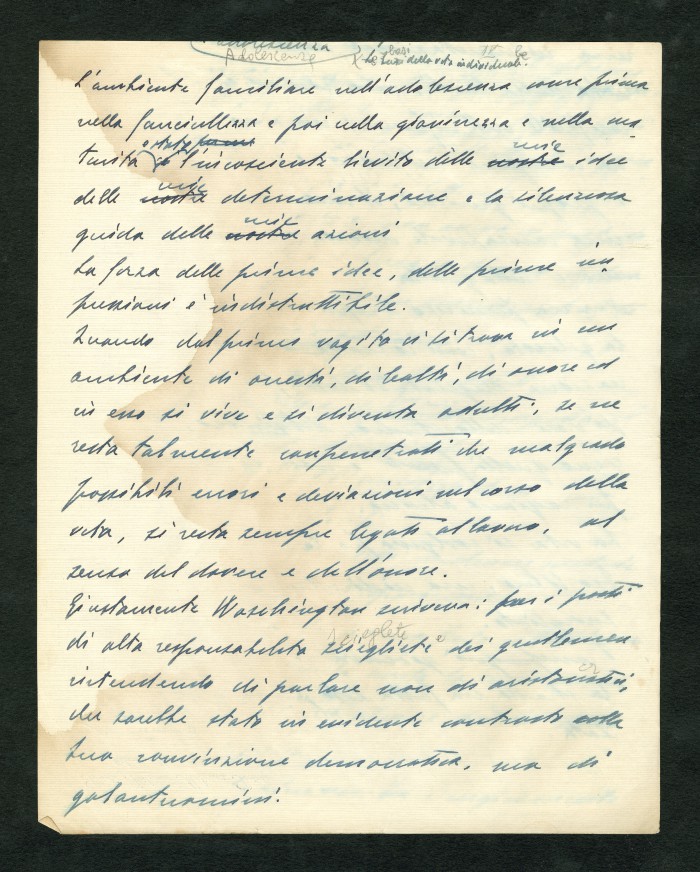 adolescenza
Adolescenza
basi
Le basi della vita individuale.
L'ambiente famigliare nell'adolescenza come prima
nella fanciullezza e poi nella giovinezza e nella ma
turità è stato l'incosciente lievito delle nostre mie idee
delle nostre mie determinazione e la silenziosa
guida delle nostre mie azioni
La forza delle prime idee, delle prime im
pressioni è indistruttibile.
Quando dal primo vagito ci si trova in un
ambiente di onestà, di lealtà, di onore ed
in esso si vive e si diventa adulti, se ne
resta talmente compenetrati che malgrado
possibili errori e deviazioni nel corso della
vita, si resta sempre legati al lavoro, al
senso del dovere e dell'onore.
Giustamente Waschington scriveva: per i posti
di alta responsabilità scegliete dei gentlemen
intendendo di parlare non di aristocratici,
che sarebbe stato in evidente contrasto colla
sua convinzione democratica, ma di
galantuomini.